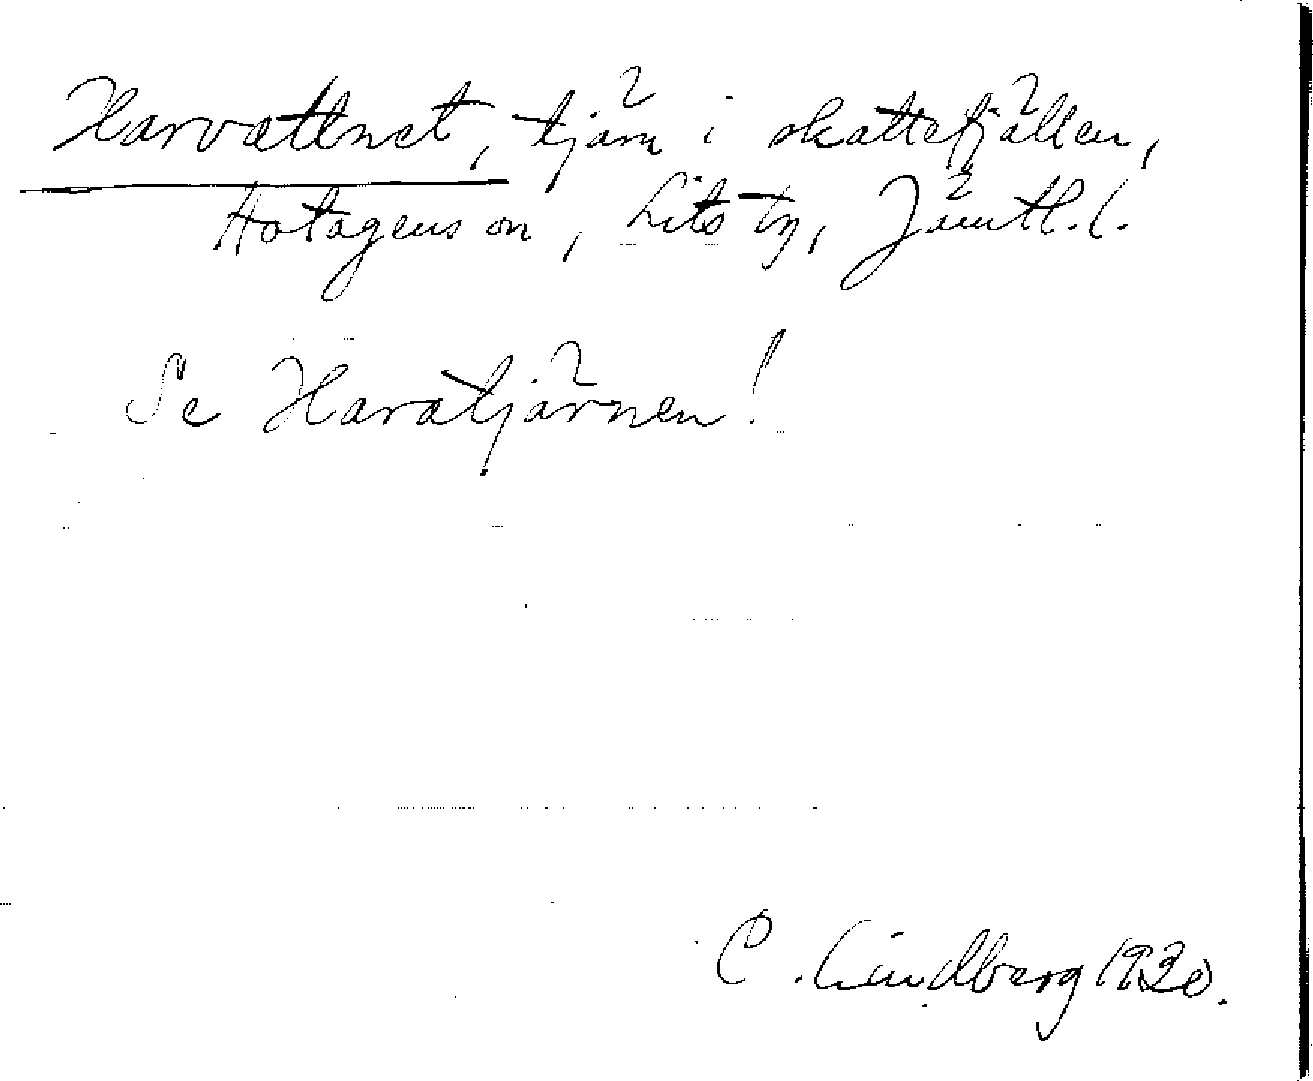 Harvattnet, tjärn i skattefjällen,
Hotagens sn, Lits tg, Jämtl. l.
Se Haratjärnen!
C. Lindberg 1930.